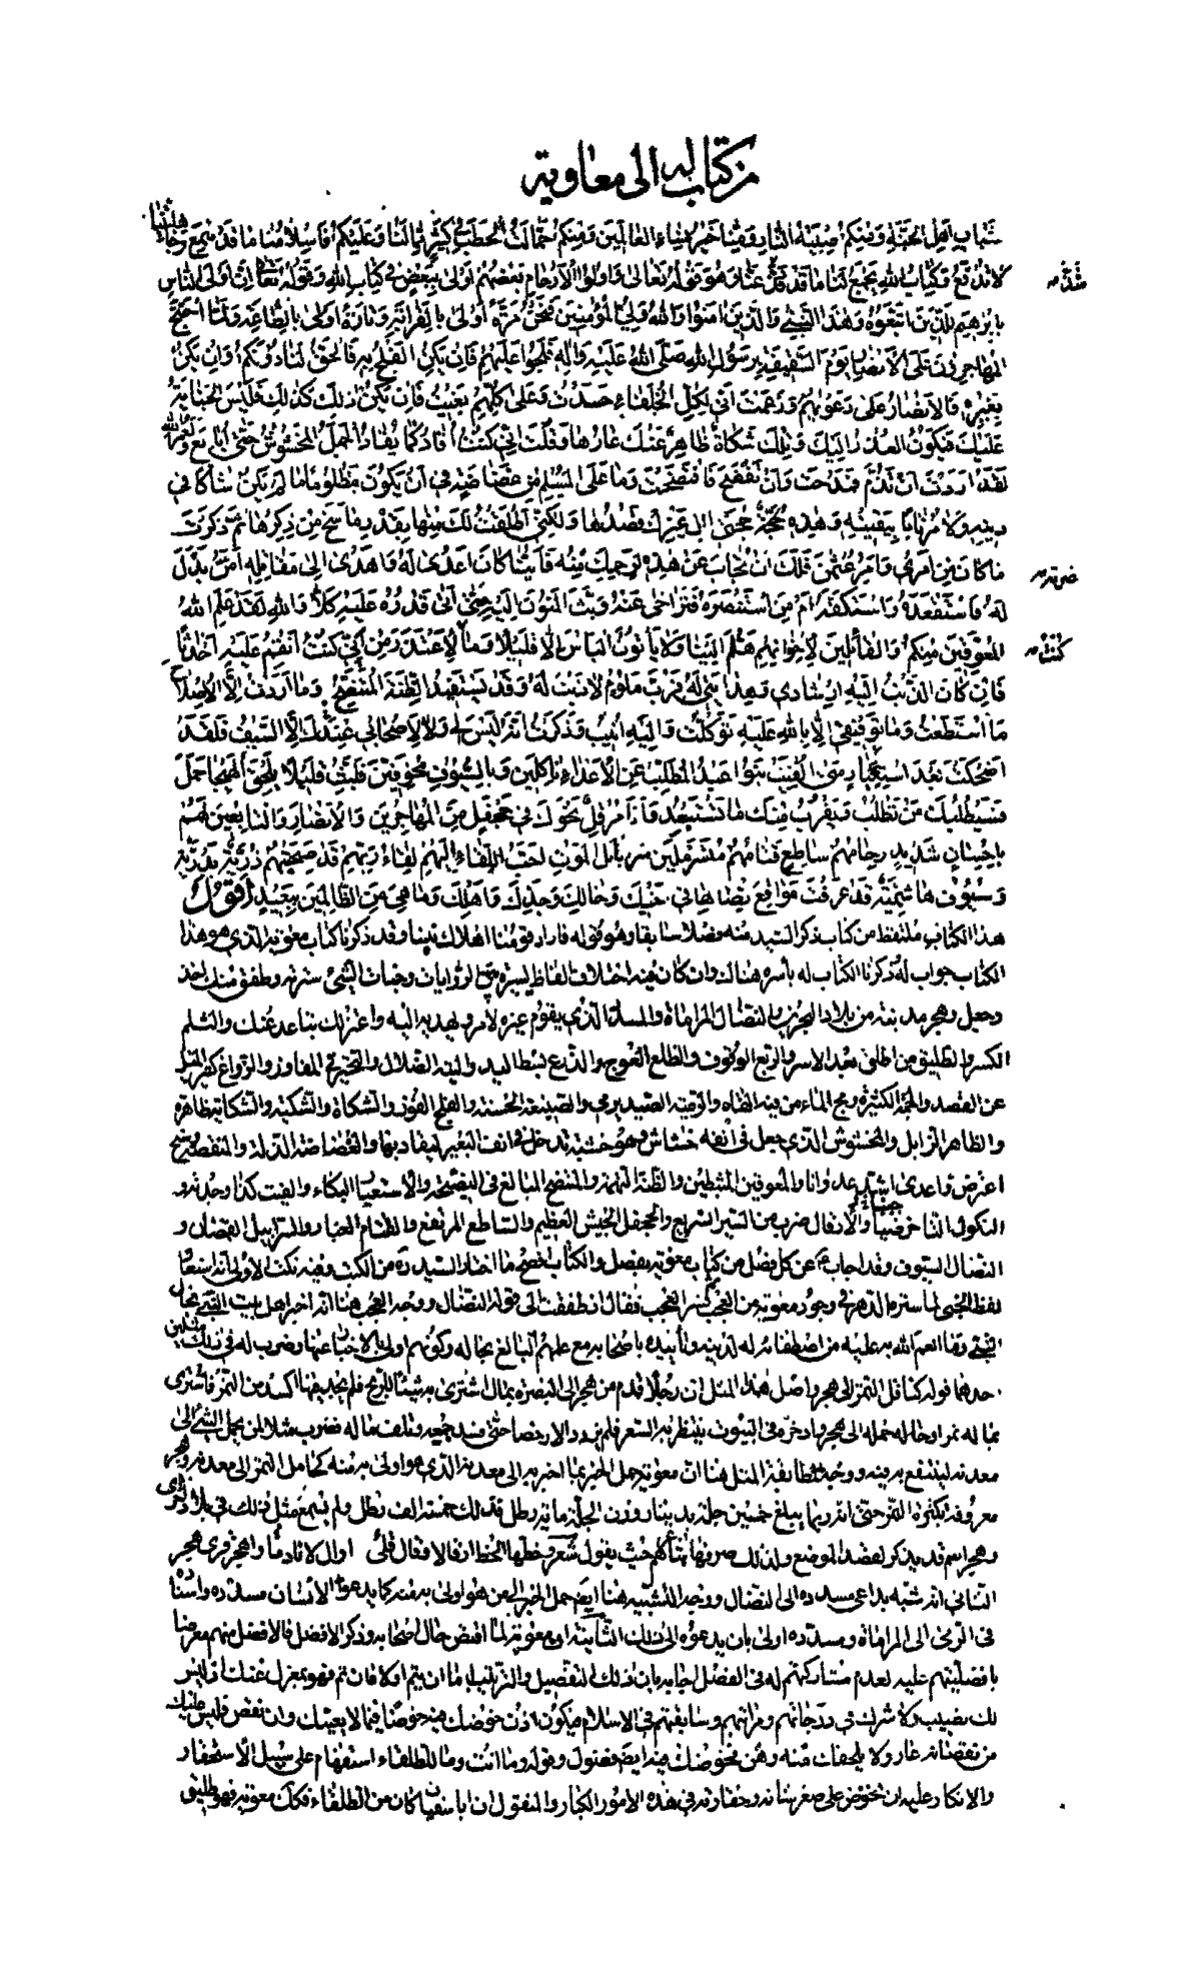 من كتاب له الى معاوية
شَبَابِ اَهْلِ الجَنَّةِ وَمِنكُمْ صِبْيَةُ النَّارِ وَمِنَّا خَيْرُ نِسَاءِ العَالَمِينَ وَمِنكُمْ حَمَّالَةُ الحَطَبِ فِي كَثِيرٍ مِمَّا لَنَا وَعَلَيْكُمْ فَاِسْلَامُنَا مَا قَدْ سُمِعَ وَجَاهِلِيَّتُنَا
لَا تُدْفَعُ وَكِتَابُ اللهِ يَجْمَعُ لَنَا مَا شَذَّ عَنَّا وَهُوَ قَوْلُهُ تَعَالَى وَاُولُوا الْاَرْحَامِ بَعْضُهُمْ اَوْلَى بِبَعْضٍ فِي كِتَابِ اللهِ وَقَوْلُهُ تَعَالَى اِنَّ اَوْلَى النَّاسِ
شذّ
بِاِبْرٰهِيمَ لَلَّذِينَ اتَّبَعُوهُ وَهٰذَا النَّبِيُّ وَالَّذِينَ اٰمَنُوا وَاللهُ وَلِيُّ الْمُؤْمِنِينَ فَنَحْنُ مَرَّةً اَوْلَى بِالْقَرَابَةِ وَتَارَةً اَوْلَى بِالطَّاعَةِ وَلَمَّا احْتَجَّ
المُهَاجِرُونَ عَلَى الْاَنْصَارِ يَوْمَ السَّقِيفَةِ بِرَسُولِ اللهِ صَلَّى اللهُ عَلَيْهِ وَاٰلِهِ فَلَجُوا عَلَيْهِمْ فَاِنْ يَكُنِ الفَلَجُ بِهِ فَالْحَقُّ لَنَا دُونَكُمْ وَاِنْ يَكُنْ
بِغَيْرِهِ فَالْاَنْصَارُ عَلَى دَعْوَاهُمْ وَزَعَمْتَ اَنِّي لِكُلِّ الخُلَفَاءِ حَسَدْتُ وَعَلَى كُلِّهِمْ بَغَيْتُ فَاِنْ يَكُنْ ذٰلِكَ كَذٰلِكَ فَلَيْسَ الجِنَايَةُ
عَلَيْكَ فَيَكُونَ العُذْرُ اِلَيْكَ وَتِلْكَ شَكَاةٌ ظَاهِرٌ عَنْكَ عَارُهَا وَقُلْتَ اِنِّي كُنْتُ اُقَادُ كَمَا يُقَادُ الجَمَلُ المَخْشُوشُ حَتّٰى اُبَايِعَ وَلَعَمْرُ اللهِ
لَقَدْ اَرَدْتَ اَنْ تَذُمَّ فَمَدَحْتَ وَاَنْ تَفْضَحَ فَافْتَضَحْتَ وَمَا عَلَى المُسْلِمِ مِنْ غَضَاضَةٍ فِي اَنْ يَكُونَ مَظْلُومًا مَا لَمْ يَكُنْ شَاكًّا فِي
دِينِهِ وَلَا مُرْتَابًا بِيَقِينِهِ وَهٰذِهِ حُجَّتِي اِلَى غَيْرِكَ قَصْدُهَا وَلٰكِنِّي اَطْلَقْتُ لَكَ مِنْهَا بِقَدْرِ مَا سَنَحَ مِنْ ذِكْرِهَا ثُمَّ ذَكَرْتَ
مَا كَانَ مِنْ اَمْرِي وَاَمْرِ عُثْمٰنَ فَلَكَ اَنْ تُجَابَ عَنْ هٰذِهِ لِرَحِمِكَ مِنْهُ فَاَيُّنَا كَانَ اَعْدٰى لَهُ وَاَهْدٰى اِلَى مَقَاتِلِهِ اَمَّنْ بَذَلَ
لَهُ فَاسْتَقْعَدَهُ وَاسْتَكَفَّهُ اَمْ مَنِ اسْتَنْصَرَهُ فَتَرَاخٰى عَنْهُ وَبَثَّ المَنُونَ اِلَيْهِ حَتّٰى اَتٰى قَدَرُهُ عَلَيْهِ كَلَّا وَاللهِ لَقَدْ عَلِمَ اللهُ
المُعَوِّقِينَ مِنْكُمْ وَالقَائِلِينَ لِاِخْوَانِهِمْ هَلُمَّ اِلَيْنَا وَلَا يَأْتُونَ البَأْسَ اِلَّا قَلِيلًا وَمَا كُنْتُ لِاَعْتَذِرَ مِنْ اَنِّي كُنْتُ اَنْقِمُ عَلَيْهِ اَحْدَاثًا
كنت
فَاِنْ كَانَ الذَّنْبُ اِلَيْهِ اِرْشَادِي وَهِدَايَتِي لَهُ فَرُبَّ مَلُومٍ لَا ذَنْبَ لَهُ وَقَدْ يَسْتَفِيدُ الظِّنَّةَ المُتَنَصِّحُ وَمَا اَرَدْتُ اِلَّا الْاِصْلَاحَ
مَا اسْتَطَعْتُ وَمَا تَوْفِيقِي اِلَّا بِاللهِ عَلَيْهِ تَوَكَّلْتُ وَاِلَيْهِ اُنِيبُ وَذَكَرْتَ اَنَّهُ لَيْسَ لِي وَلَا لِاَصْحَابِي عِنْدَكَ اِلَّا السَّيْفُ فَلَقَدْ
اَضْحَكْتَ بَعْدَ اسْتِعْبَارٍ مَتٰى اَلْفَيْتَ بَنِي عَبْدِ المُطَّلِبِ عَنِ الْاَعْدَاءِ نَاكِلِينَ وَبِالسُّيُوفِ مُخَوَّفِينَ فَلَبِّثْ قَلِيلًا يَلْحَقِ الهَيْجَا حَمَلْ
فَسَيَطْلُبُكَ مَنْ تَطْلُبُ وَيَقْرُبُ مِنْكَ مَا تَسْتَبْعِدُ وَاَنَا مُرْقِلٌ نَحْوَكَ فِي جَحْفَلٍ مِنَ المُهَاجِرِينَ وَالْاَنْصَارِ وَالتَّابِعِينَ لَهُمْ
بِاِحْسَانٍ شَدِيدٍ زِحَامُهُمْ سَاطِعٍ قَتَامُهُمْ مُتَسَرْبِلِينَ سَرَابِيلَ المَوْتِ اَحَبُّ اللِّقَاءِ اِلَيْهِمْ لِقَاءُ رَبِّهِمْ قَدْ صَحِبَتْهُمْ ذُرِّيَّةٌ بَدْرِيَّةٌ
وَسُيُوفٌ هَاشِمِيَّةٌ قَدْ عَرَفْتَ مَوَاقِعَ نِصَالِهَا فِي اَخِيكَ وَخَالِكَ وَجَدِّكَ وَاَهْلِكَ وَمَا هِيَ مِنَ الظَّالِمِينَ بِبَعِيدٍ اَقُولُ
هذا الكتاب ملتقط من كتاب ذكر السيد منه فصلا سابقا وهو قوله فاراد قومنا اهلاك نبينا وقد ذكرنا كتاب معوية الذى هو هذا
الكتاب جواب له وذكرنا الكتاب له باسره هناك وان كان فيه اختلاف الفاظ يسيرة بين الروايات وخبات الشئ سترته وطفق منك اخذ
وجعل وهجر مدينة من بلاد البحرين والنضال المراماة والمسدد الذى يقوم غيره لامر ويهديه اليه واعتزلك تباعد عنك والثلم
الكسر والطليق من اطلق بعد الاسر والربع الوقوف والظلع العرج والذرع بسط اليد والتيه الضلال والتحير فى المفاوز والرواغ كثير الميل
عن القصد والجمة الكثيرة ومج الماء من فيه القاه والرمية الصيد يرمى والصنيعة الحسنة والفلج الفوز والشكاة والشكية والشكاية ظاهرة
والظاهر الزايل والمخشوش الذى جعل فى انفه خشاش وهو خشبة تدخل فى انف البعير ليقاد بها والغضاضة الذلة والمنقصة وسنح
اعترض واعدى اشد عدوانا والمعوقين المثبطين والظنة التهمة والمتنصح المبالغ فى النصيحة والاستعبار البكاء والفيت كذا وجدته و
النكول التاخر جبنا والارقال ضرب من السير السريع والجحفل الجيش العظيم والساطع المرتفع والقتام الغبار والسرابيل القمصان و
النصال السيوف وقد اجاب ع عن كل فصل من كتاب معوية بفصل والكتاب افصح ما اختار السيد ره من الكتب وفيه نكت الاولى انه استعار
لفظ الخبئ لما ستره الدهر فى وجود معوية من العجب ثم فسر العجب فقال اذ طفقت الى قوله النضال ووجه العجب هنا انه اخبر اهل بيت النبى بحال
النبى وما انعم الله به عليه من اصطفائه له لدينه وتأييده باصحابه مع علمهم البالغ بحاله وكونهم اولى بالاخبار عنها وضرب له فى ذلك مثلين
احدهما قوله كناقل التمر الى هجر واصل هذا المثل ان رجلا قدم من هجر الى البصرة بمال اشترى به شيئا للربح فلم يجد فيها اكسد من التمر فاشترى
بماله تمرا وحمله الى هجر وادخره فى البيوت ينتظر به السعر فلم يزدد الا رخصا حتى فسد جميعه وتلف ماله فضرب مثلا لمن يحمل الشئ الى
معدنه لينتفع به فيه ووجه مطابقة المثل هنا ان معوية حمل الخبر بما اخبر به الى معدنه الذى هو اولى به منه كحامل التمر الى معدنه وهجر
معروفة بكثرة التمر حتى انه ربما يبلغ خمسين جلة بدينار ووزن الجلة مائة رطل فذلك خمسة الف رطل ولم يسمع مثل ذلك فى بلاد اخرى
وهجر اسم قد يذكر لقصد الموضع ولذلك صرفها حيث يقول شعر وخطها الخط ارقالا وقال قلى اوال لا نادما واهجر قرى هجر
الثانى انه شبهه بداعى مسدده الى النضال ووجه التشبيه هنا ايضا حمل الخبر الى من هو اولى به منه كما يدعو الانسان مسدده واستاذه
فى الرمى الى المراماة ومسدده اولى بان يدعوه الى ذلك الثانية ان معوية لما اقتص حال اصحابه وذكر الافضل فالافضل منهم معرضا
بافضليتهم عليه لعدم مشاركتهم له فى الفضل اجابه بان ذلك التفضيل والترتيب اما ان يتم اولا فان تم فهو بمعزل عنك اذ ليس
لك نصيب ولا شرك فى درجاتهم ومراتبهم وسابقتهم فى الاسلام فيكون اذن خوضك فيه خوضا فيما لا يعنيك وان نقص فليس عليك
من نقصانه عار ولا يلحقك منه وهن فخوضك فيه ايضا فضول وقوله وما انت وما للطلقاء استفهام على سبيل الاستحقار
والانكار عليه ان يخوض على صغر شانه وحقارته فى هذه الامور الكبار والمنقول ان ابا سفيان كان من الطلقاء فكذلك معوية فهو طليق